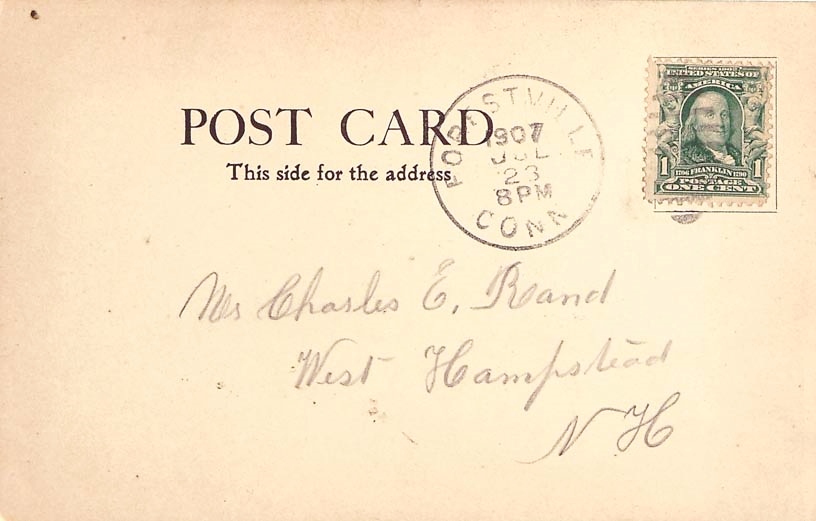 POST CARD
This side for the address
FORESTVILLE
1907
JUL
23
8 PM
CONN
SERIES 1902
UNITED STATES OF
AMERICA
1 1706 FRANKLIN 1790 1
POSTAGE
ONE CENT
Mr Charles E. Rand
West Hampstead
N H